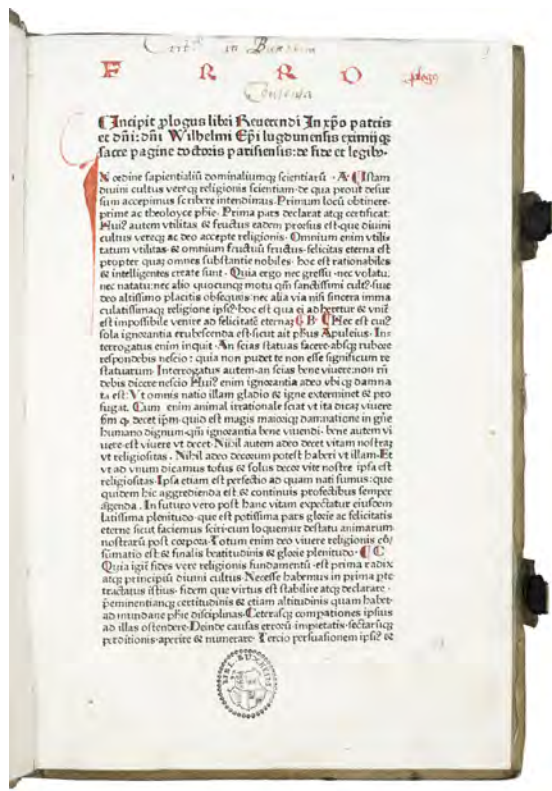 Cart. in Buxheim
F R R O plogꝰ
¶Incipit ꝓlogus libri Reuerendi In xp̄o patris
et dn̄i: dn̄i Wilhelmi Ep̄i lugdunensis eximijqꝫ
sacre pagine doctoris parisiensis: de fide et legibꝰ·
IN ordine sapientialiū dominaliumqꝫ scientiarū · A ¶Istam
diuini cultus vereqꝫ religionis scientiam·de qua prout desur
sum accepimus scribere intendimus·Primum locū obtinere·
prime ac theologice ph̄ie·Prima pars declarat atqꝫ certificat:
Huiꝰ autem vtilitas & fructus eadem prorsus est·que diuini
cultus vereqꝫ ac deo accepte religionis·Omnium enim vtili
tatum vtilitas·& omnium fructuū fructus·felicitas eterna est
propter quaꝫ omnes substantie nobiles· hoc est rationabiles
& intelligentes create sunt·Quia ergo nec gressu·nec volatu·
nec natatu:nec alio quocunqꝫ motu qm̄ sanctissimi cultꝰ·siue
deo altissimo placitis obsequijs·nec alia via nisi sincera imma
culatissimaqꝫ religione ipsiꝰ·hoc est qua ei adheretur & vnit̄
est impossibile venire ad felicitatē eternaꝫ ¶ B· ¶Hec est cuiꝰ
sola ignorantia erubescenda est·sicut ait ph̄us Apuleius·In
terrogatus enim inquit·An scias statuas facere·absqꝫ rubore
respondebis nescio: quia non pudet te non esse significum re
statuarum·Interrogatus autem·an scias bene viuere:non rn̄
debis dicere nescio Huiꝰ enim ignorantia adeo vbiqꝫ damna
ta est: Vt omnis natio illam gladio & igne exterminet & pro
fugat· Cum enim animal irrationale sciat vt ita dicaꝫ viuere
fm ꝙ decet ip̄m·quid est magis maioriqꝫ damnatione in gn̄e
humano dignum·qm̄ ignorantia bene viuendi·bene autem vi
uere·est viuere vt decet·Nihil autem adeo decet vitam nostraꝫ
vt religiositas . Nihil adeo decorum potest haberi vt illam·Et
vt ad vnum dicamus totus & solus decor vite nostre ipsa est
religiositas·Ipsa etiam est perfectio ad quam nati sumus:que
quidem hic aggredienda est & continuis profectibus semper
agenda . In futuro vero post hanc vitam expectatur eiusdem
latissima plenitudo·que est potissima pars glorie ac felicitatis
eterne sicut faciemus sciri·cum loquemur destatu animarum
nostrarū post corpora·Totum enim deo viuere religionis cō/
sumatio est & finalis beatitudinis & glorie plenitudo· ¶ C
Quia igit̄ fides vere religionis fundamentū ·est prima radix
atqꝫ principiū diuini cultus Necesse habemus in prima pte
tractatus istius· fidem que virtus est stabilire atqꝫ declarare·
p̱eminentiamqꝫ certitudinis & etiam altitudinis quam habet·
ad mundane ph̄ie disciplinas·Ceterasqꝫ compationes ipsius
ad illas ostendere·Deinde causas errorū·impietatis·sectarūqꝫ
perditionis·aperire & numerare· Tercio persuasionem ipsiꝰ &
BIBL. BUXHEIM